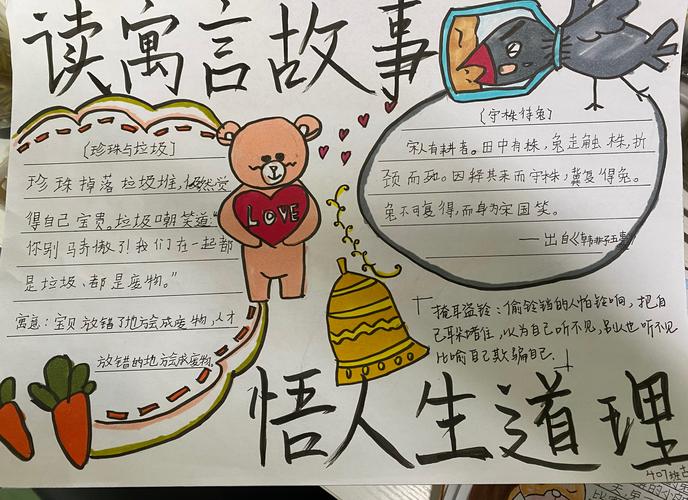 读寓言故事
〔珍珠与垃圾〕
珍珠掉落垃圾堆,仍然觉
得自己宝贵。垃圾口朝笑道:“
你别马乔傲了!我们在一起都
是垃圾、都是废物。”
寓意:宝贝放错了地方会成废物,人才
放错的地方会成废物.
LOVE
〔守株待兔〕
宋人有耕者。田中有株,兔走触株,折
颈而死。因释其耒而守株,冀复得兔。
兔不可复得,而身为宋国笑。
——出自《韩非子五蠹》
「掩耳盗铃:偷铃铛的人怕铃响,把自
己耳朵堵住,以为自己听不见,别人也听不见
比喻自己欺骗自己.」
悟人生道理
407班